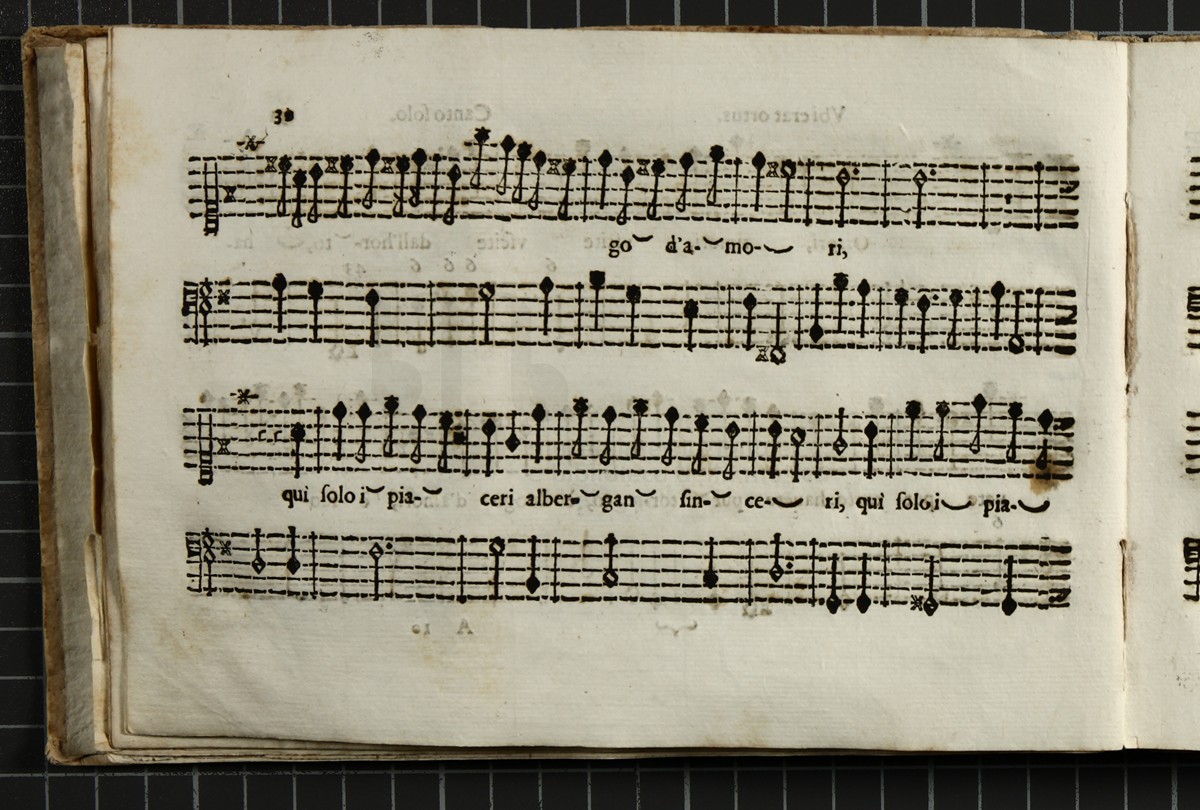 30
go d'a- mo- ri,
qui ſolo i pia- ceri alber- gan ſin- ce- ri, qui ſolo i pia-